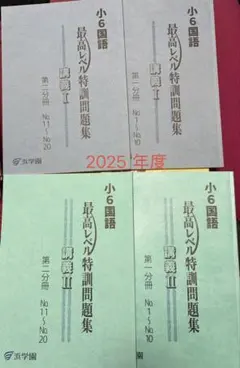 小6国語
最高レベル特訓問題集
講義Ⅰ
第二分冊 No.11〜No.20
浜学園
小6国語
最高レベル特訓問題集
講義Ⅰ
No.1〜No.10
2025 年度
小6国語
最高レベル特訓問題集
講義Ⅱ
第二分冊 No.11〜No.20
浜学園
小6国語
最高レベル特訓問題集
講義Ⅱ
第一分冊 No.1〜No.10
園